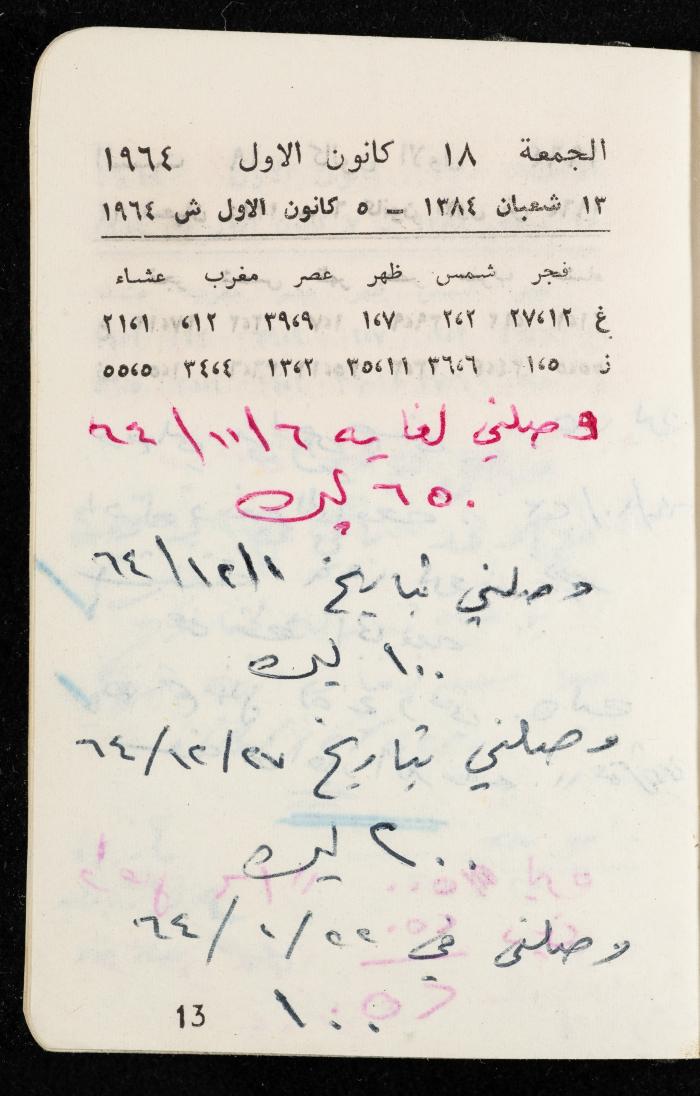 الجمعة ١٨ كانون الاول ١٩٦٤
١٣ شعبان ١٣٨٤ – ٥ كانون الاول ش ١٩٦٤
فجر شمس ظهر عصر مغرب عشاء
غ ١٢،٢٧ ٢،٢ ٧،١ ٩،٣٩ ١٢، ١،٢١
ز ٥،١ ٦،٣٦ ١١،٣٥ ٢،١٣ ٤،٣٤ ٥،٥٥
وصلني لغايه ٦/١١/٦٤
٦٥٠ ليره
وصلني بتاريخ ١/١٢/٦٤
١٠٠ ليره
وصلني بتاريخ ٢٧/١٢/٦٤
٢٠٠ ليره
وصلني في ٢٢/١/٦٤
١٠٠
13